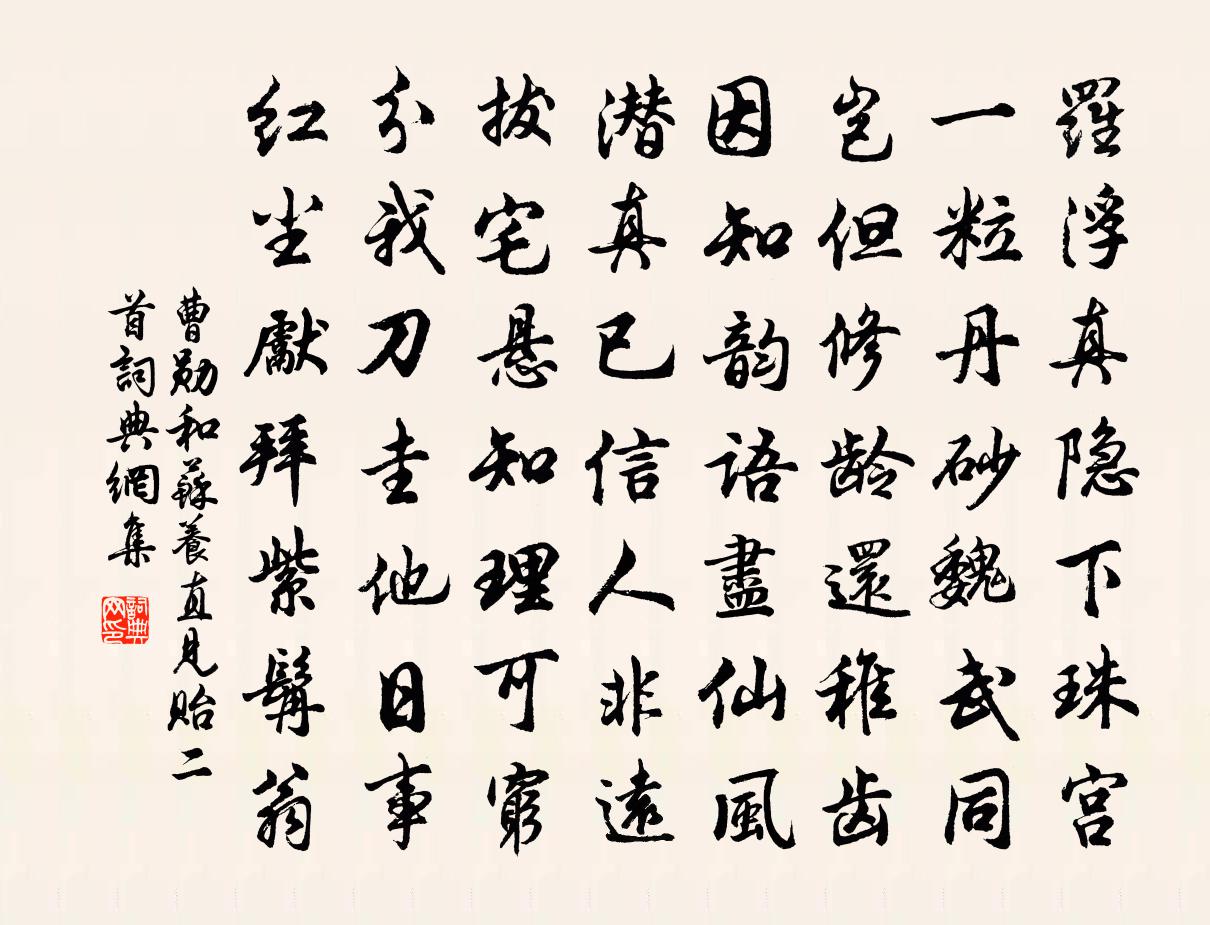 羅浮真隐下珠宫
一粒丹砂魏武同
岂但修龄還稚齿
因知韵语盡仙風
潜真已信人非遠
拔宅悬知理可窮
分我刀圭他日事
红尘獻拜紫髯翁
曹勋和蘇養直見貽二
首詞典網集
詞典网印